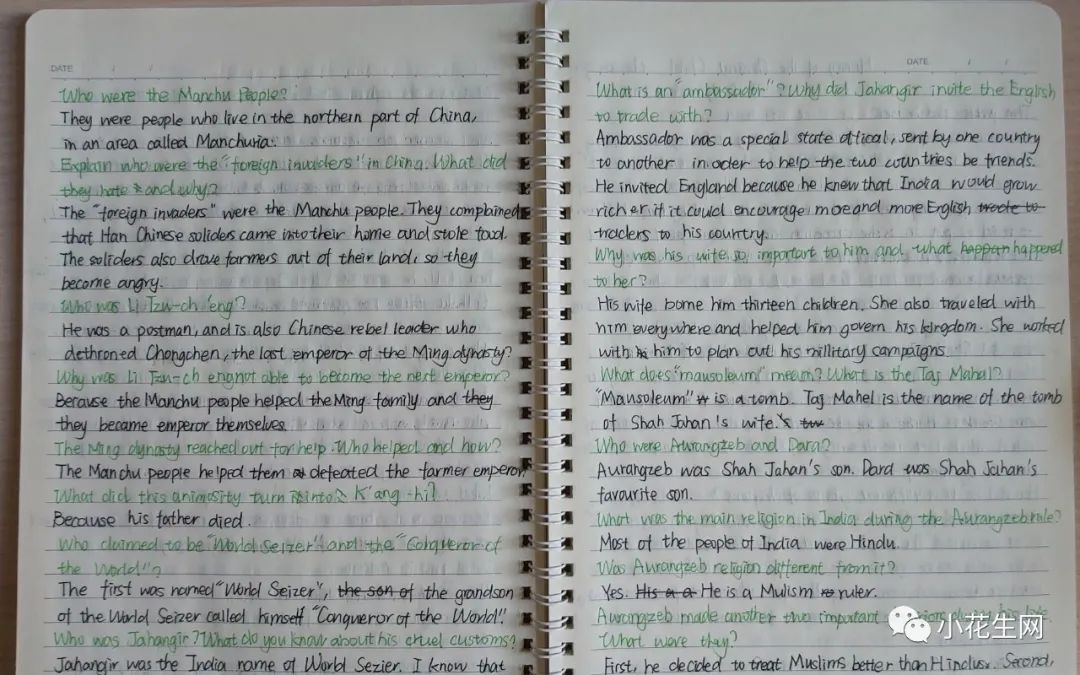 DATE / /
Who were the Manchu People?
They were people who live in the northern part of China,
in an area called Manchuria.
Explain who were the "foreign invaders" in China. What did
they hate and why?
The "foreign invaders" were the Manchu people. They complained
that Han Chinese soliders came into their home and stole food.
The soliders also drove farmers out of their land, so they
become angry.
Who was Li Tzu-ch 'eng?
He was a postman, and is also Chinese rebel leader who
dethroned Chongchen, the last emperor of the Ming dynasty?
Why was Li Tzu-ch eng not able to become the next emperor?
Because the Manchu people helped the Ming family and they
they become emperor themselves.
The Ming dynasty reached out for help. Who helped and how?
The Manchu people helped them defeated the farmer emperor.
What did this animosity turn into K'ang-hi?
Because his father died.
Who claimed to be "World Seizer" and the "Conqueror of
the World"?
The first was named "World Seizer", the son of the grandson
of the World Seizer called himself "Conqueror of the World".
Who was Jahangir? What do you know about his cruel customs?
Jahangir was the India name of World Sezier. I know that
DATE / /
What is an "ambassador"? Why did Jahangir invite the English
to trade with?
Ambassador was a special state offical, sent by one country
to another in order to help the two countries be friends.
He invited England because he knew that India would grow
richer if it could encourage more and more English trade to
traders to his country.
Why was his wife so important to him and what happan happened
to her?
His wife borne him thirteen children. She also traveled with
him everywhere and helped him govern his kingdom. She worked
with him to plan out his millitary campaigns
What does "mausoleum" mean? What is the Taj Mahal?
"Mausoleum" is a tomb. Taj Mahel is the name of the tomb
of Shah Jahan's wife.
Who were Awrangzeb and Dara?
Aurangzeb was Shah Jahan's son. Dara was Shah Jahan's
favourite son.
What was the main religion in India during the Awrangzeb rule?
Most of the people of India were Hindu.
Was Aurangzeb religion different from it?
Yes. His a a He is a Mulism ruler.
Awrangzeb made another two important
What were they?
First, he decided to treat Muslims better than Hindus. Second,
小花生网